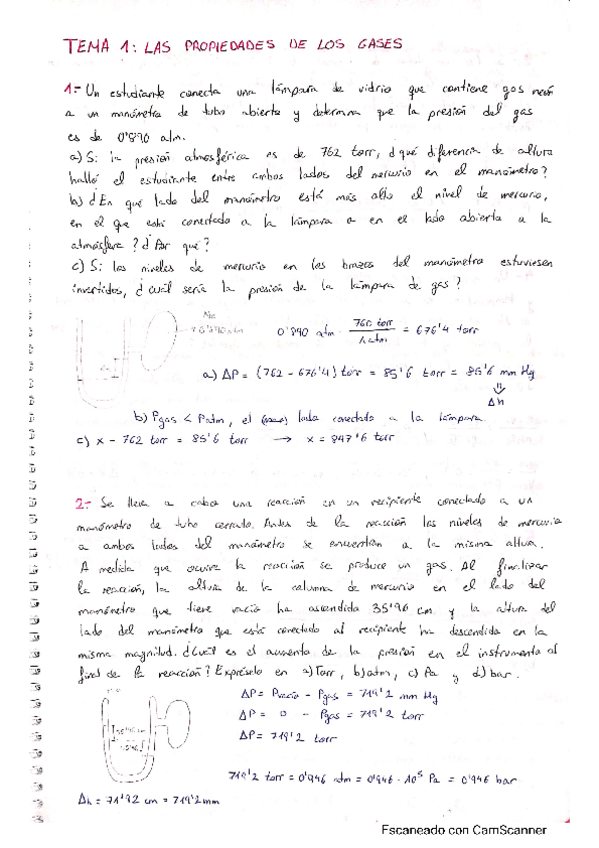 TEMA 1: LAS PROPIEDADES DE LOS GASES
1.- Un estudiante conecta una lámpara de vidrio que contiene gas neón
a un manómetro de tubo abierto y determina que la presión del gas
es de 0'890 atm.
a) Si la presión atmosférica es de 762 torr, ¿qué diferencia de altura
halló el estudiante entre ambos lados del mercurio en el manómetro?
b) ¿En qué lado del manómetro está más alto el nivel de mercurio,
en el que está conectado a la lámpara o en el lado abierto a la
atmósfera? ¿Por qué?
c) Si los niveles de mercurio en los brazos del manómetro estuviesen
invertidos, ¿cuál sería la presión de la lámpara de gas?
0'890 atm · 760 torr / 1 atm = 676'4 torr
a) ΔP = (762 - 676'4) torr = 85'6 torr = 85'6 mm Hg
Δh
b) Pgas < Patm, el lado conectado a la lámpara
c) x - 762 torr = 85'6 torr → x = 847'6 torr
2.- Se lleva a cabo una reacción en un recipiente conectado a un
manómetro de tubo cerrado. Antes de la reacción los niveles de mercurio
a ambos lados del manómetro se encuentran a la misma altura.
A medida que ocurre la reacción se produce un gas. Al finalizar
la reacción, la altura de la columna de mercurio en el lado del
manómetro que tiene vacío ha ascendido 35'96 cm y la altura del
lado del manómetro que está conectado al recipiente ha descendido en la
misma magnitud. ¿Cuál es el aumento de la presión en el instrumento al
final de la reacción? Expréselo en a) Torr, b) atm, c) Pa y d) bar.
ΔP = Pvacío - Pgas = 719'2 mm Hg
ΔP = 0 - Pgas = 719'2 torr
ΔP = 719'2 torr
719'2 torr = 0'946 atm = 0'946 · 10⁵ Pa = 0'946 bar
Δh = 71'92 cm = 719'2 mm
Escaneado con CamScanner